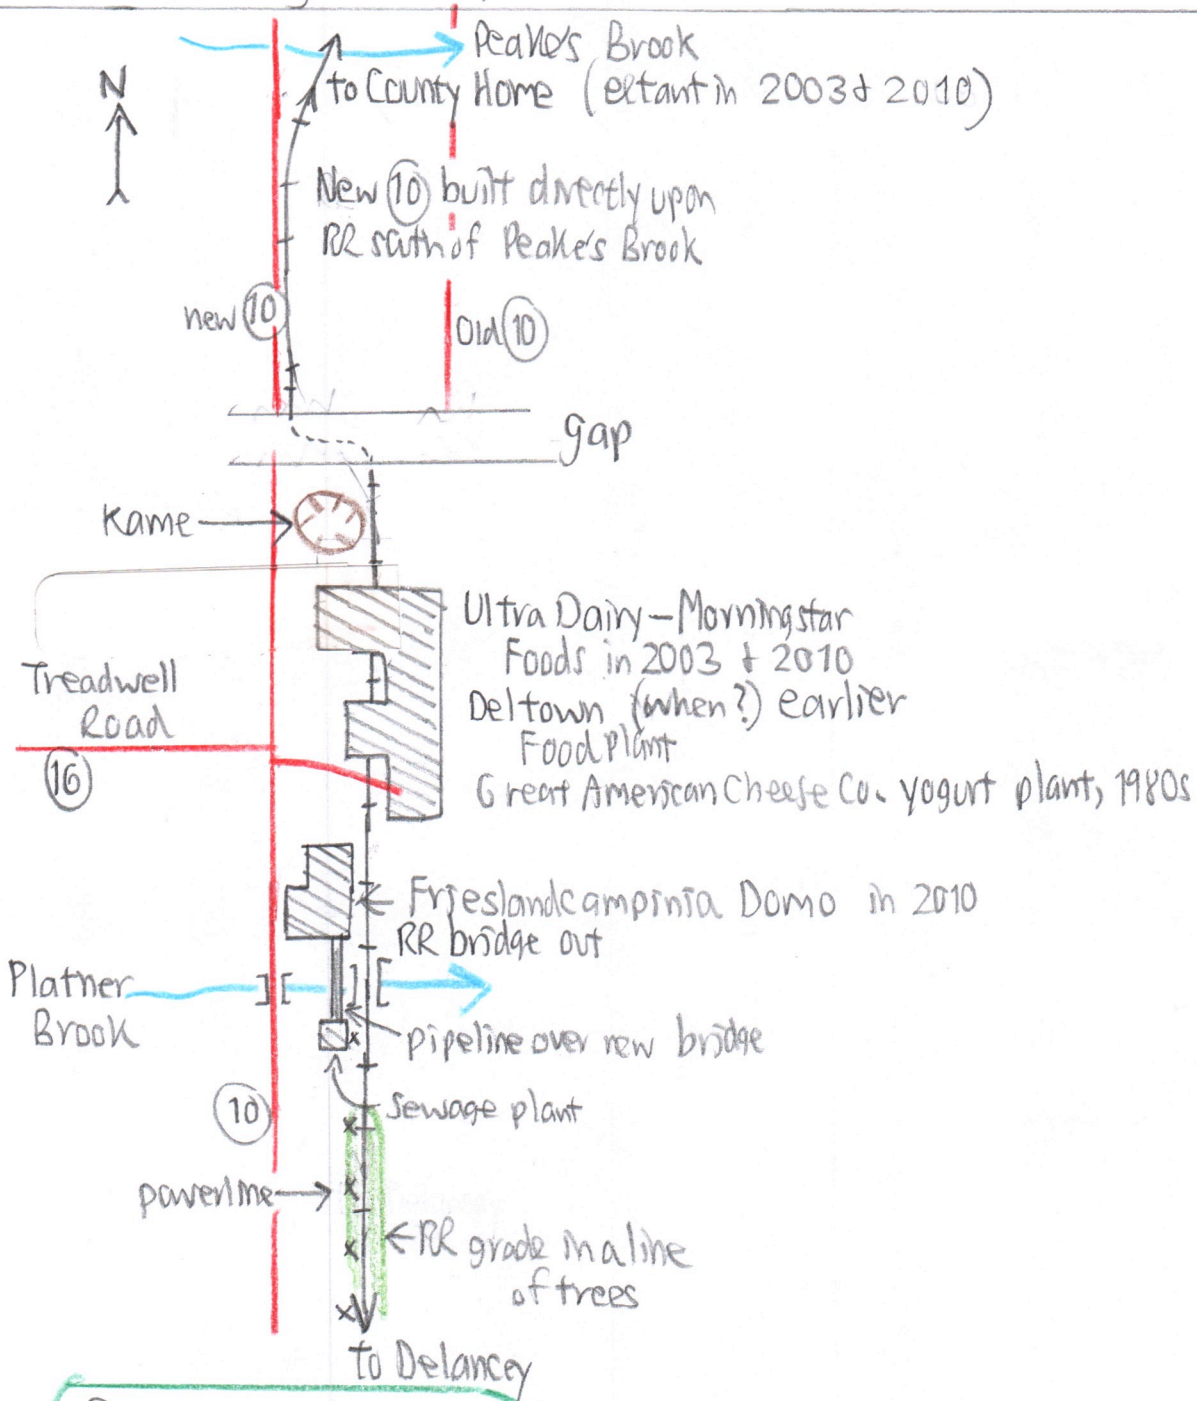 Peake's Brook
N
to County Home (extant in 2003 & 2010)
New 10 built directly upon
RR south of Peake's Brook
new 10
Old 10
gap
Kame
Ultra Dairy - Morningstar
Foods in 2003 & 2010
Treadwell
Road
Deltown (when?) earlier
Food Plant
16
Great American Cheese Co. yogurt plant, 1980s
Frieslandcampinia Domo in 2010
RR bridge out
Platner
Brook
pipeline over new bridge
10
Sewage plant
powerline
RR grade in a line
of trees
to Delancey